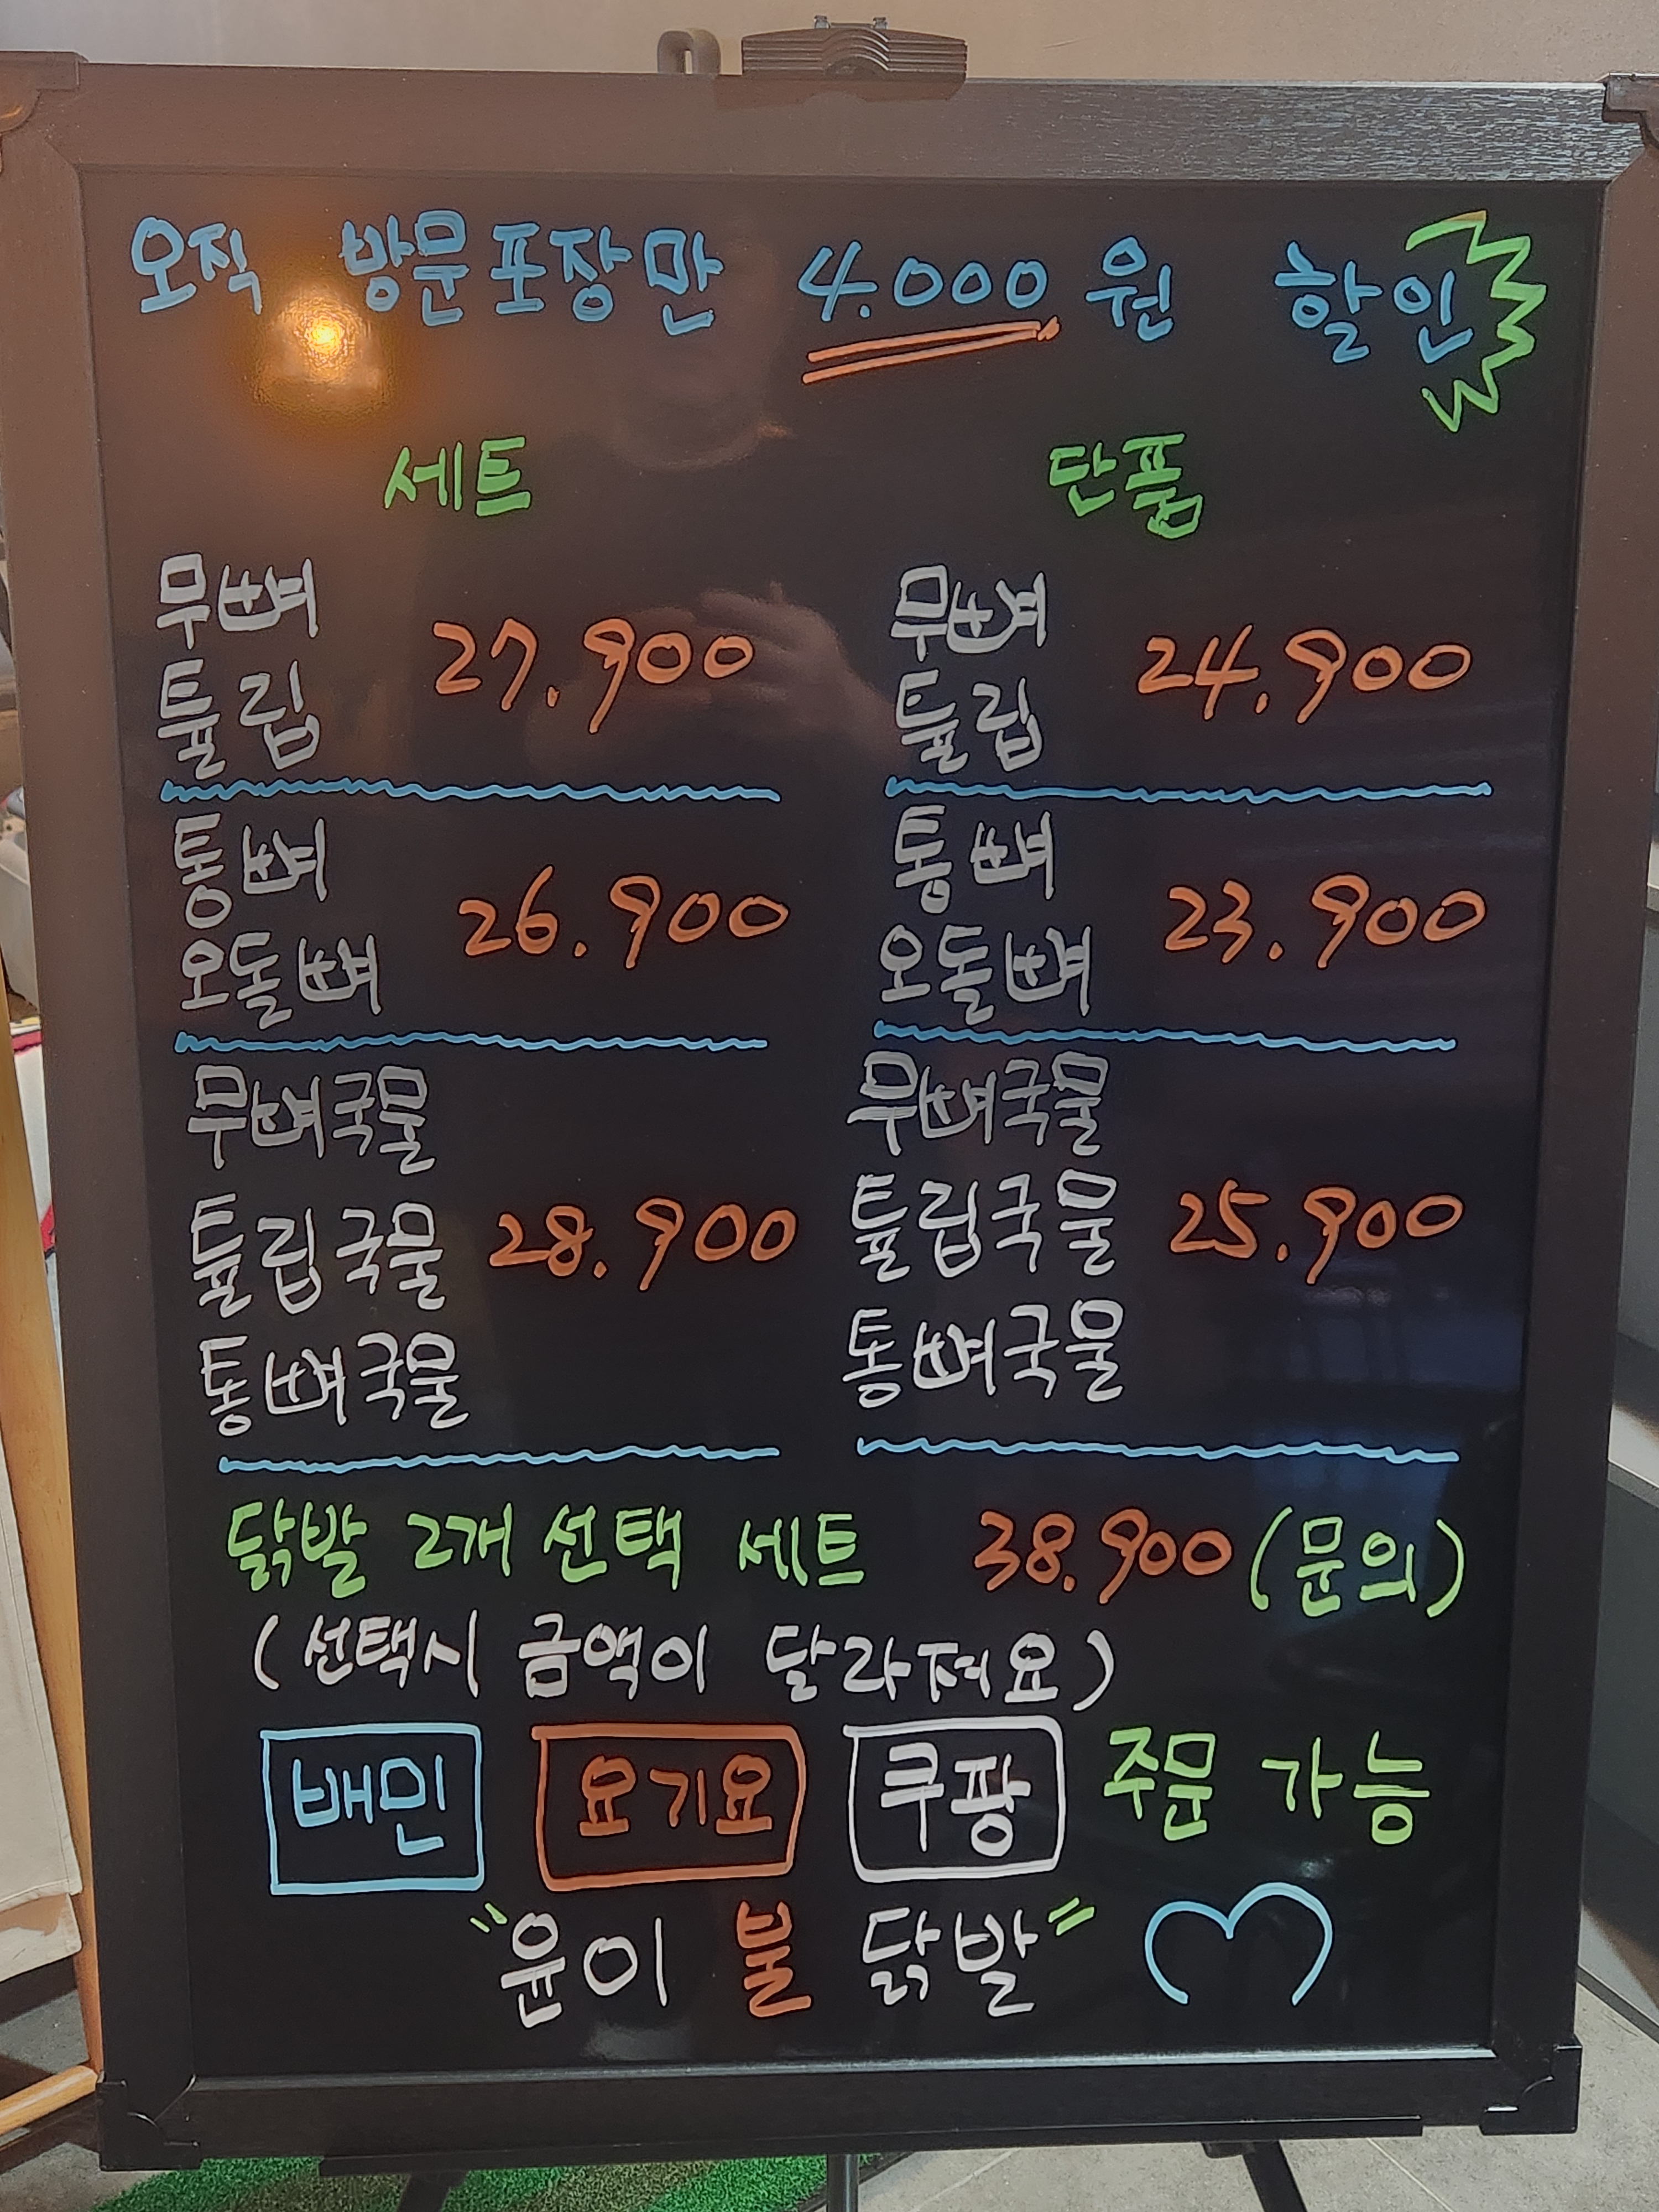 오직 방문포장만 4.000원 할인
세트
무뼈
튤립
27.900
통뼈
오돌뼈
26.900
무뼈국물
튤립국물
통뼈국물
28.900
단품
무뼈
튤립
24.900
통뼈
오돌뼈
23.900
무뼈국물
튤립국물
통뼈국물
25.900
닭발 2개 선택 세트 38.900 (문의)
(선택시 금액이 달라져요)
배민 요기요 쿠팡 주문 가능
"윤이 불 닭발"